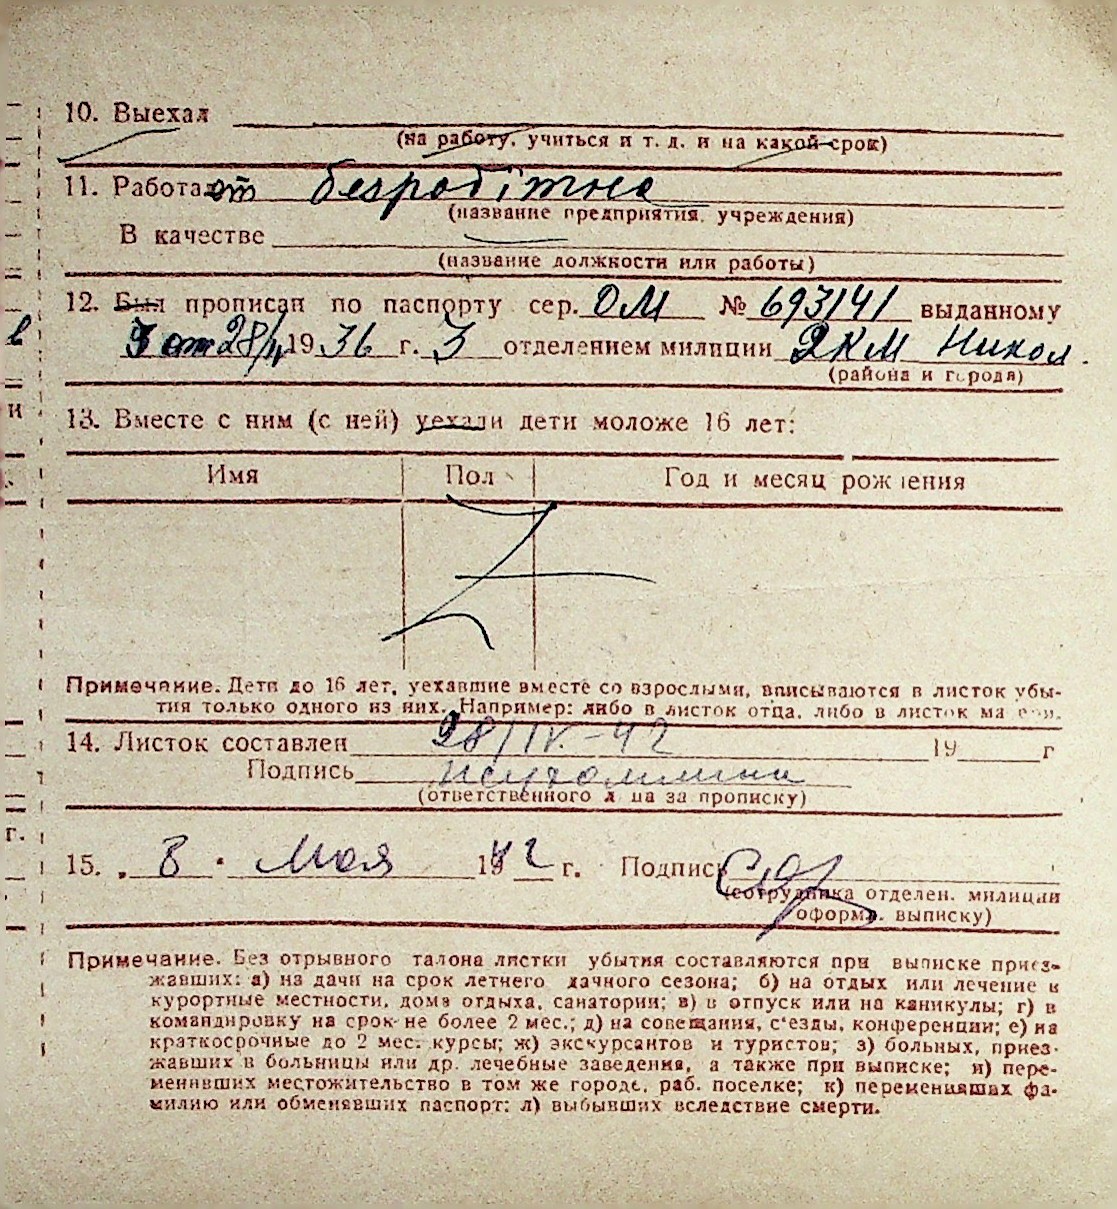 10. Выехал
(на работу, учиться и т. д. и на какой срок)
11. Работает безробітна
(название предприятия, учреждения)
В качестве
(название должности или работы)
12. Был прописан по паспорту сер. ОМ № 693141 выданному
в
3 от 28/ 1936 г. 3 отделением милиции РКМ Никол.
(района и города)
13. Вместе с ним (с ней) уехали дети моложе 16 лет:
и
Имя Пол Год и месяц рождения
Примечание. Дети до 16 лет, уехавшие вместе со взрослыми, вписываются в листок убы-
тия только одного из них. Например: либо в листок отца, либо в листок матери.
14. Листок составлен 28/IV-42 19 г
Подпись
(ответственного лица за прописку)
г.
15. „ 8 " Мая 1942 г. Подпись
(сотрудника отделен. милиции
оформ. выписку)
Примечание. Без отрывного талона листки убытия составляются при выписке приез-
жавших: а) на дачи на срок летнего дачного сезона; б) на отдых или лечение в
курортные местности, дома отдыха, санатории; в) в отпуск или на каникулы; г) в
командировку на срок не более 2 мес.; д) на совещания, с'езды, конференции; е) на
краткосрочные до 2 мес. курсы; ж) экскурсантов и туристов; з) больных, приез-
жавших в больницы или др. лечебные заведения, а также при выписке; и) пере-
менивших местожительство в том же городе, раб. поселке; к) переменивших фа-
милию или обменявших паспорт; л) выбывших вследствие смерти.